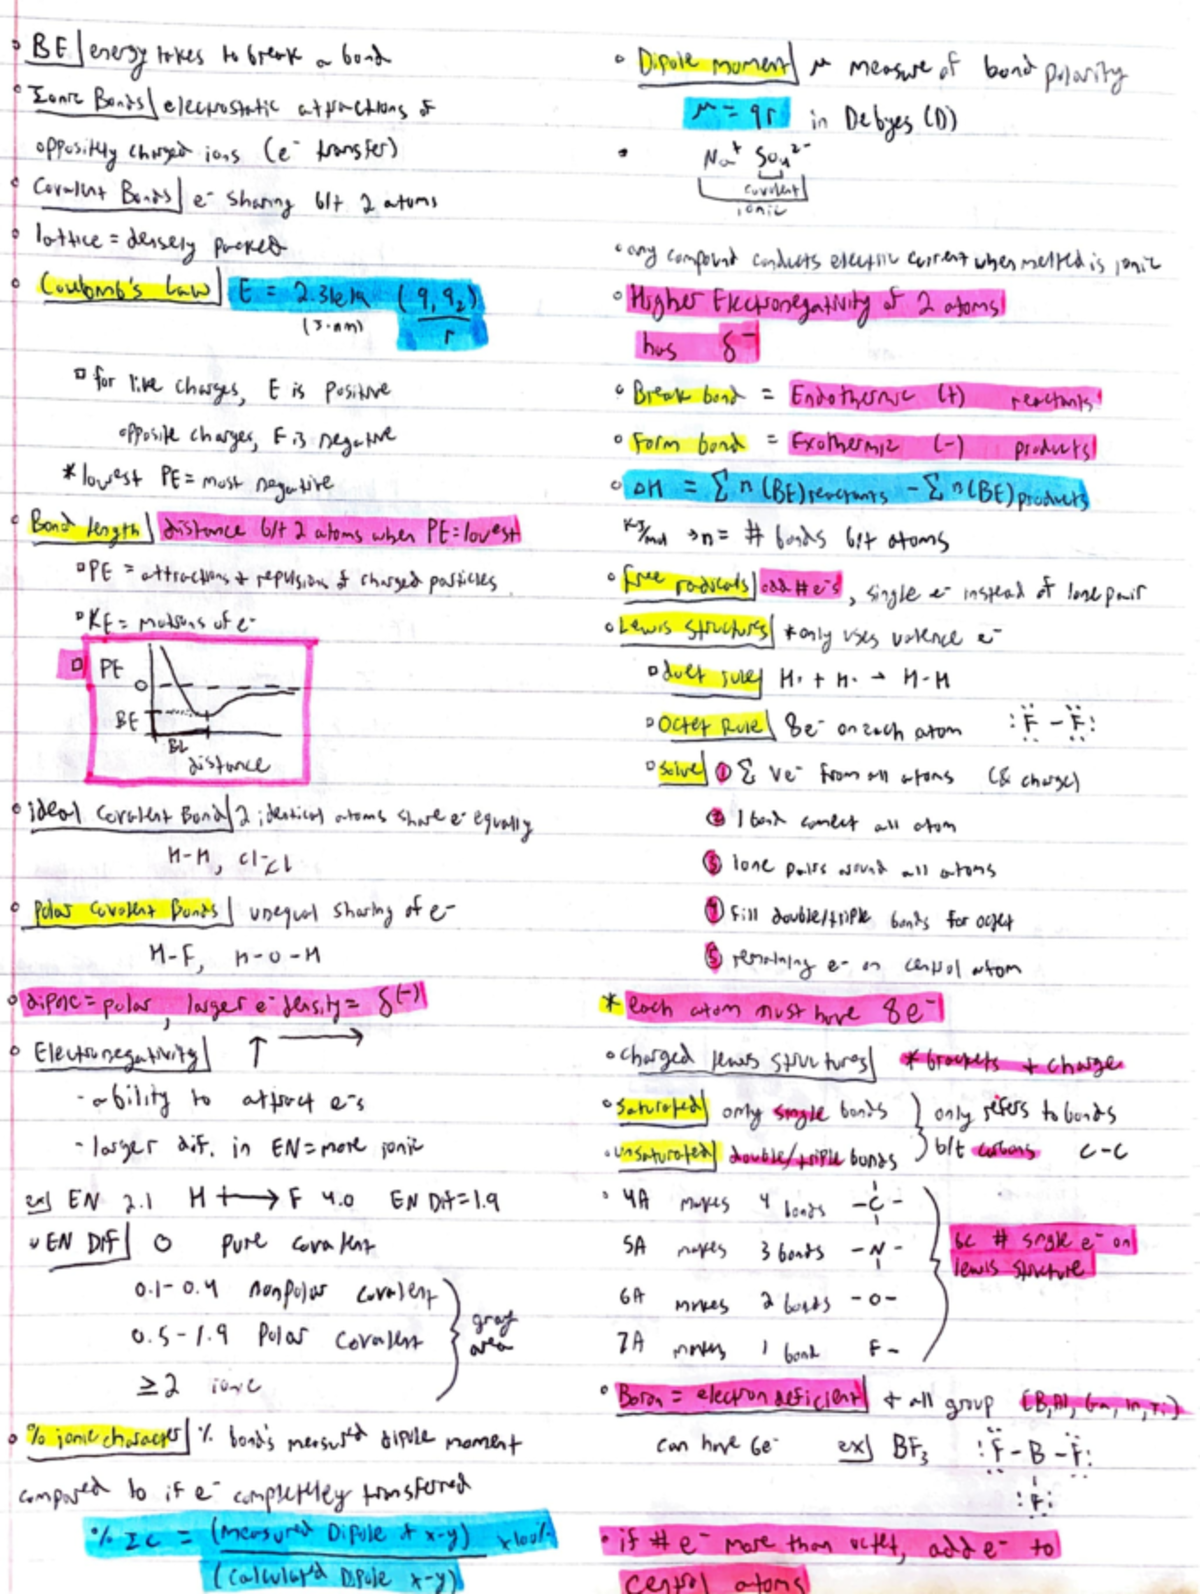 BE energy takes to break a bond
Ionic Bonds electrostatic attractions of
oppositely charged ions (e⁻ transfer)
Covalent Bonds e⁻ sharing b/t 2 atoms
lattice = densely packed
Coulomb's Law E = 2.31e-19 (q₁q₂)
(J·nm) r
for like charges, E is positive
opposite charges, E is negative
*lowest PE = most negative
Bond length distance b/t 2 atoms when PE = lowest
PE = attractions + repulsions of charged particles
KE = motions of e⁻
PE
0
BE
BL
distance
ideal Covalent Bond 2 identical atoms share e⁻ equally
H-H, Cl-Cl
Polar Covalent Bonds unequal sharing of e⁻
H-F, H-O-H
dipole = polar, larger e⁻ density = δ(-)
Electronegativity ↑ →
- ability to attract e⁻s
- larger dif. in EN = more ionic
ex] EN 2.1 H +→ F 4.0 EN Dif = 1.9
EN Dif 0 pure covalent
0.1-0.4 nonpolar covalent
0.5-1.9 Polar covalent
gray area
≥2 ionic
% ionic character % bond's measured dipole moment
compared to if e⁻ completeley transferred
% IC = (measured Dipole of x-y) x100%
(calculated Dipole x-y)
Dipole moment μ measure of bond polarity
μ = qr in Debyes (D)
Na⁺ SO₄²⁻
covalent
ionic
any compound conducts electric current when melted is ionic
Higher Electronegativity of 2 atoms
has δ⁻
Break bond = Endothermic (+) reactants
Form bond = Exothermic (-) products
ΔH = Σ n (BE) reactants - Σ n (BE) products
KJ/mol → n = # bonds b/t atoms
free radicals odd # e⁻s, single e⁻ instead of lone pair
Lewis Structures *only uses valence e⁻
duet rule H· + H· → H-H
Octet Rule 8e⁻ on each atom :F-F:
Solve ① Σ ve⁻ from all atoms (& charge)
② 1 bond connect all atom
③ lone pairs around all atoms
④ Fill double/triple bonds for octet
⑤ remaining e⁻ on central atom
* each atom must have 8e⁻
charged lewis structures *brackets + charge
Saturated only single bonds
only refers to bonds
unsaturated double/triple bonds
b/t carbons C-C
4A makes 4 bonds -C-
5A makes 3 bonds -N-
bc # single e⁻ on
lewis structure
6A makes 2 bonds -O-
7A makes 1 bond F-
Boron = electron deficient + all group (B, Al, Ga, In, Ti)
can have 6e⁻ ex] BF₃ :F-B-F:
:F:
if # e⁻ more than octet, add e⁻ to
central atoms